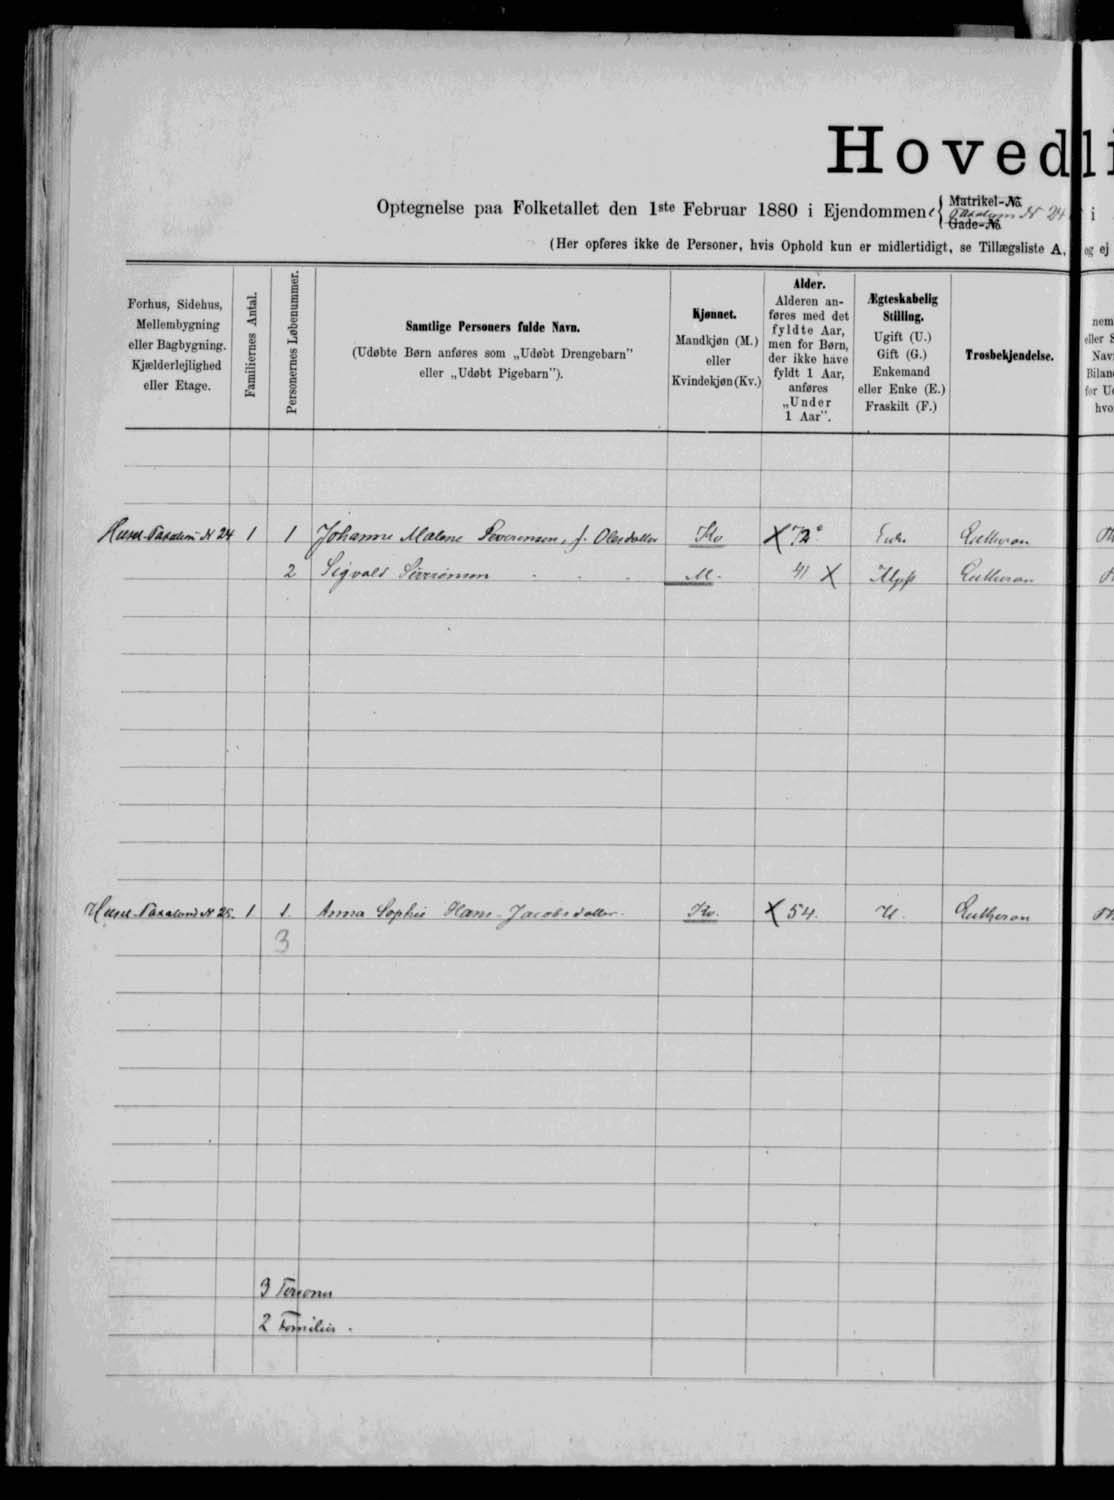 Hovedli
Optegnelse paa Folketallet den 1ste Februar 1880 i Ejendommene { Matrikel-No. Taxalum N 24 Gade-No. i
(Her opføres ikke de Personer, hvis Ophold kun er midlertidigt, se Tillægsliste A, og ej
Forhus, Sidehus, Mellembygning eller Bagbygning. Kjælderlejlighed eller Etage.
Familiernes Antal.
Personernes Løbenummer.
Samtlige Personers fulde Navn.
(Udøbte Børn anføres som „Udøbt Drengebarn"
eller „Udøbt Pigebarn").
Kjønnet.
Mandkjøn (M.)
eller
Kvindekjøn (Kv.)
Alder.
Alderen an-
føres med det
fyldte Aar,
men for Børn,
der ikke have
fyldt 1 Aar,
anføres
„Under
1 Aar".
Ægteskabelig
Stilling.
Ugift (U.)
Gift (G.)
Enkemand
eller Enke (E.)
Fraskilt (F.)
Trosbekjendelse.
nem
eller S
Nav
Bilan
for U
hvo
Huset N 24 1 1 Johanne Malene Severinsen, f. Olesdatter Kv X 72 Enke Lutheran
2 Sigvald Severinsen M. 41 X Lutheran
Huset N 25. 1 1. Anna Sophie Hans-Jacobsdatter. Kv. X 54. U. Lutheran
3
3 Personer
2 Familier.